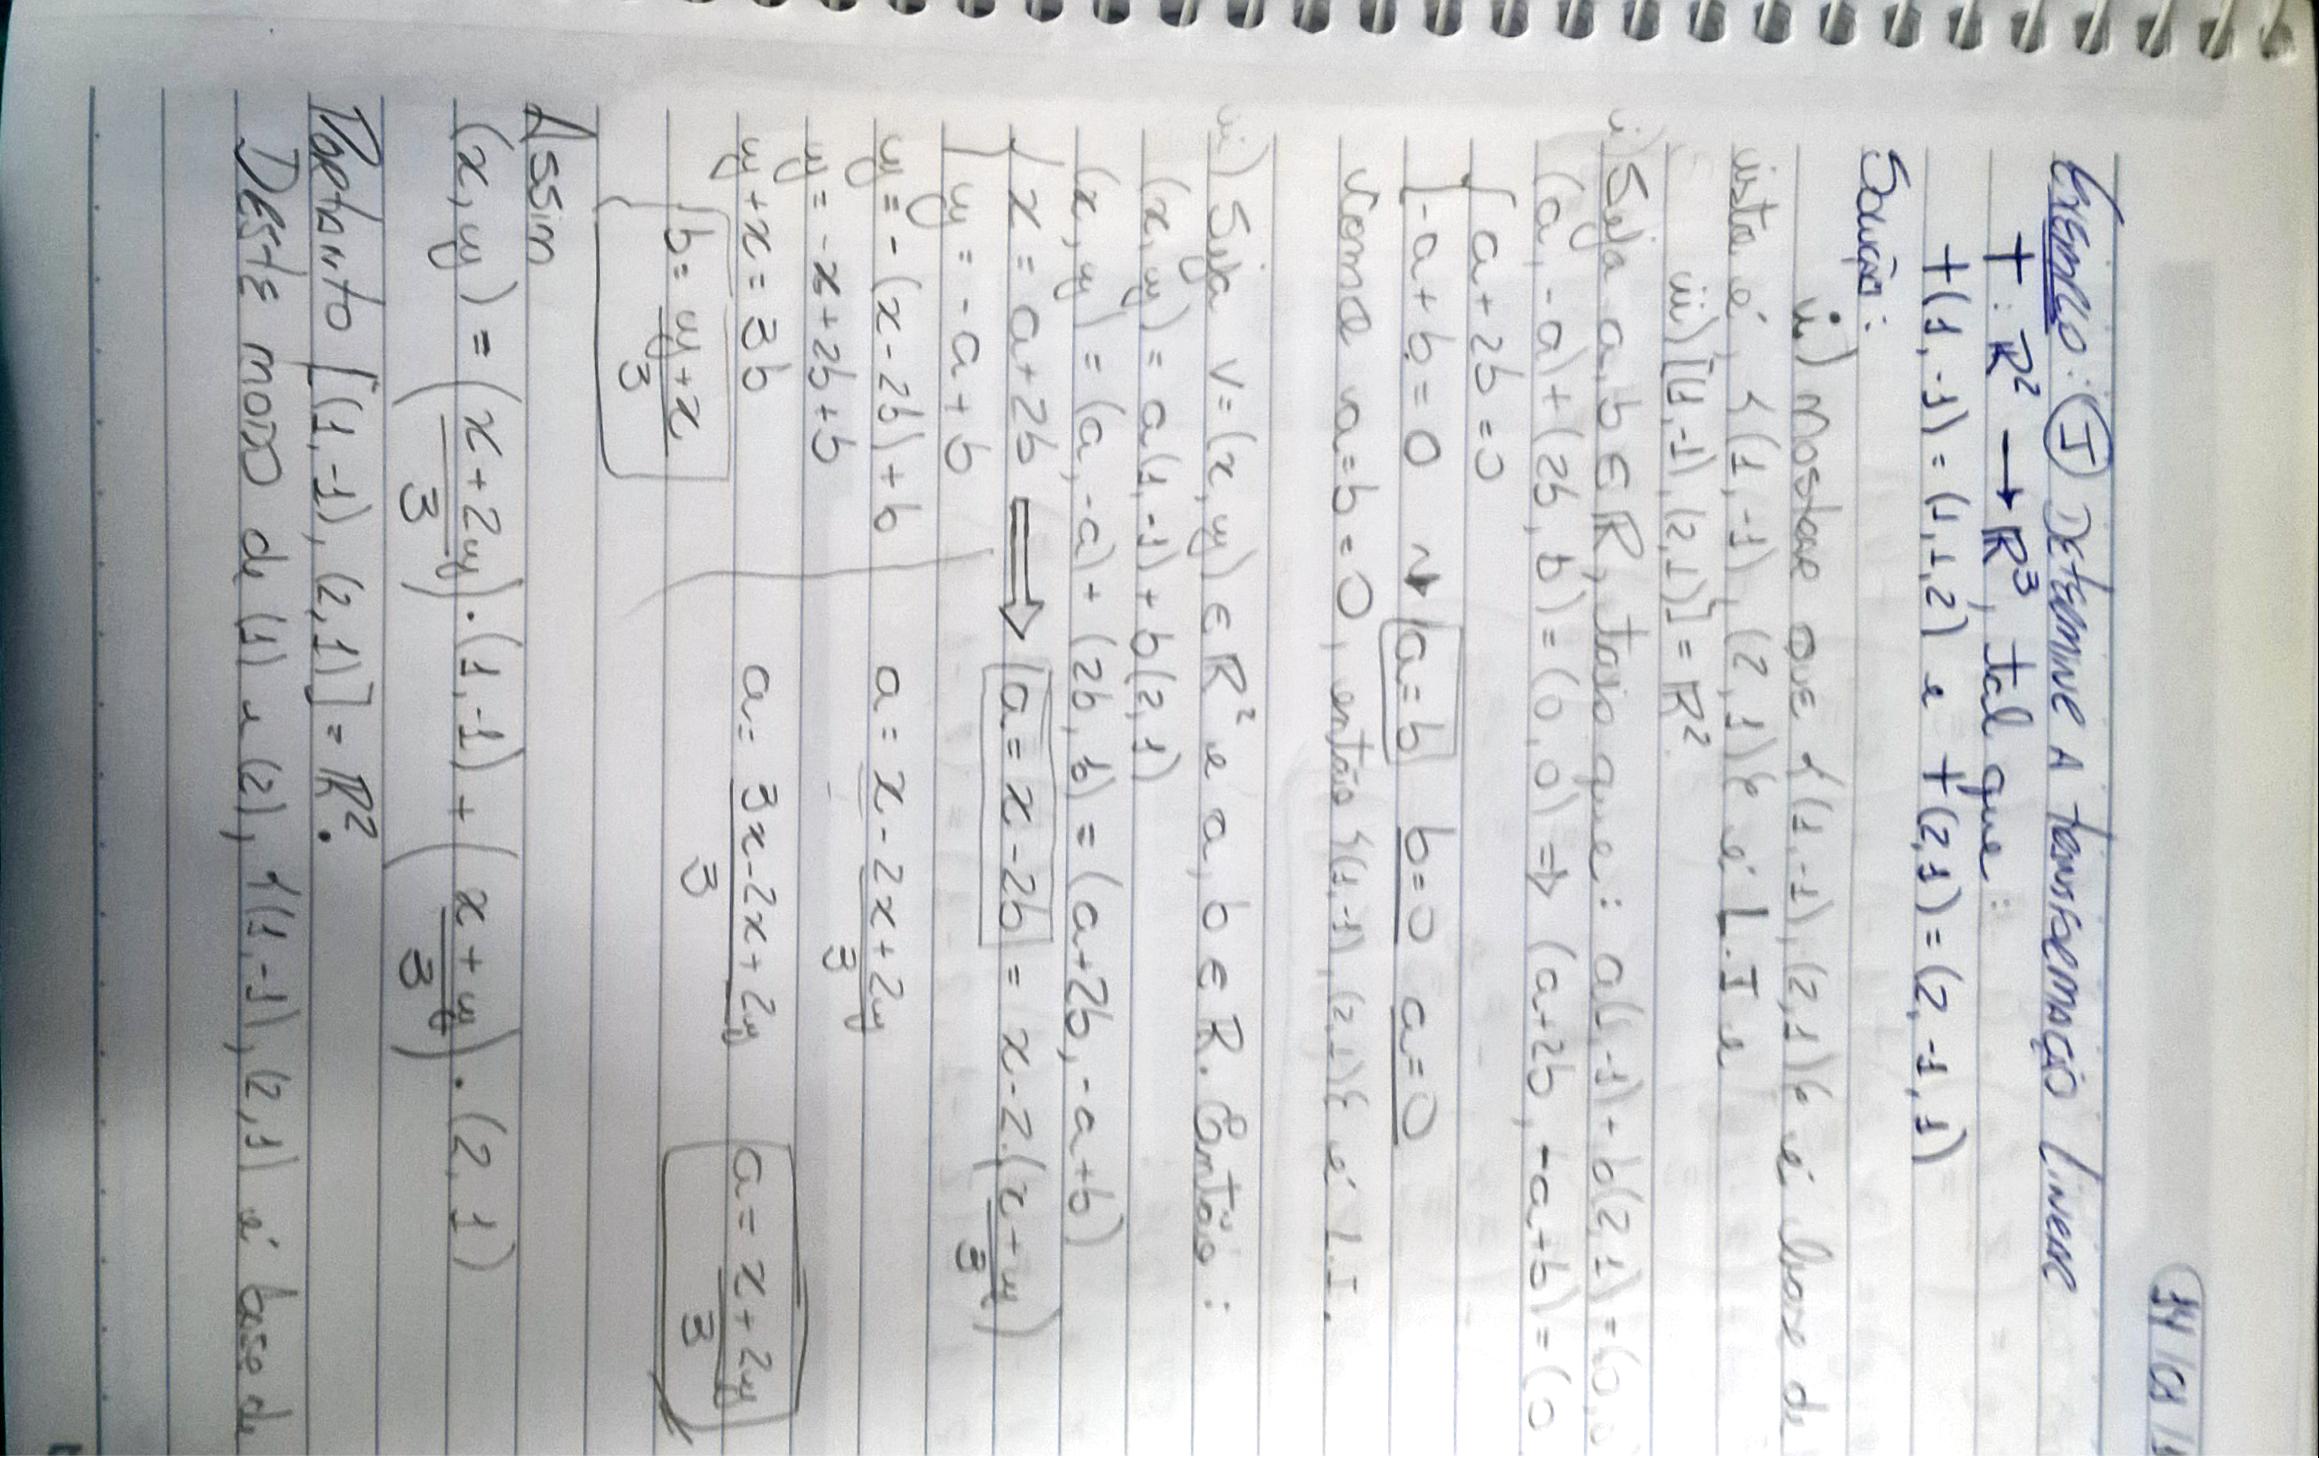 14/01/1
EXEMPLO: (I) DETERMINE A TRANSFORMAÇÃO LINEAR
T: ℝ² → ℝ³, tal que:
T(1,-1) = (1,1,2) e T(2,1) = (2,-1,1)
SOLUÇÃO:
i) MOSTRAR QUE {(1,-1), (2,1)} é base de
isto é, {(1,-1), (2,1)} é L.I e
ii) [(1,-1), (2,1)] = ℝ².
i) Seja a, b ∈ ℝ, tais que: a(1,-1) + b(2,1) = (0,0
(a, -a) + (2b, b) = (0,0) ⇒ (a+2b, -a+b) = (0
{ a + 2b = 0
-a + b = 0 ⇝ a=b b=0 a=0
Como a=b=0, então {(1,-1), (2,1)} é L.I.
ii) Seja V = (x, y) ∈ ℝ² e a, b ∈ ℝ. Então:
(x, y) = a(1,-1) + b(2,1)
(x, y) = (a, -a) + (2b, b) = (a+2b, -a+b)
{ x = a+2b ⟹ a = x-2b = x-2.(x+y/3)
y = -a+b
y = -(x-2b)+b a = x - 2x+2y/3
y = -x+2b+b
y+x = 3b a = 3x-2x+2y/3 a = x+2y/3
b = y+x/3
Assim
(x, y) = (x+2y/3).(1,-1) + (x+y/3).(2,1)
PORTANTO [(1,-1), (2,1)] = ℝ².
DESTE MODO de (1) e (2), {(1,-1), (2,1) é base de